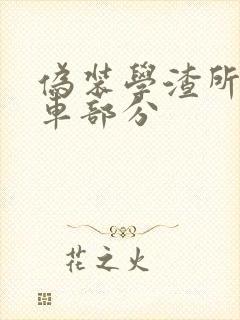 偽裝學渣所
車部分
花之火